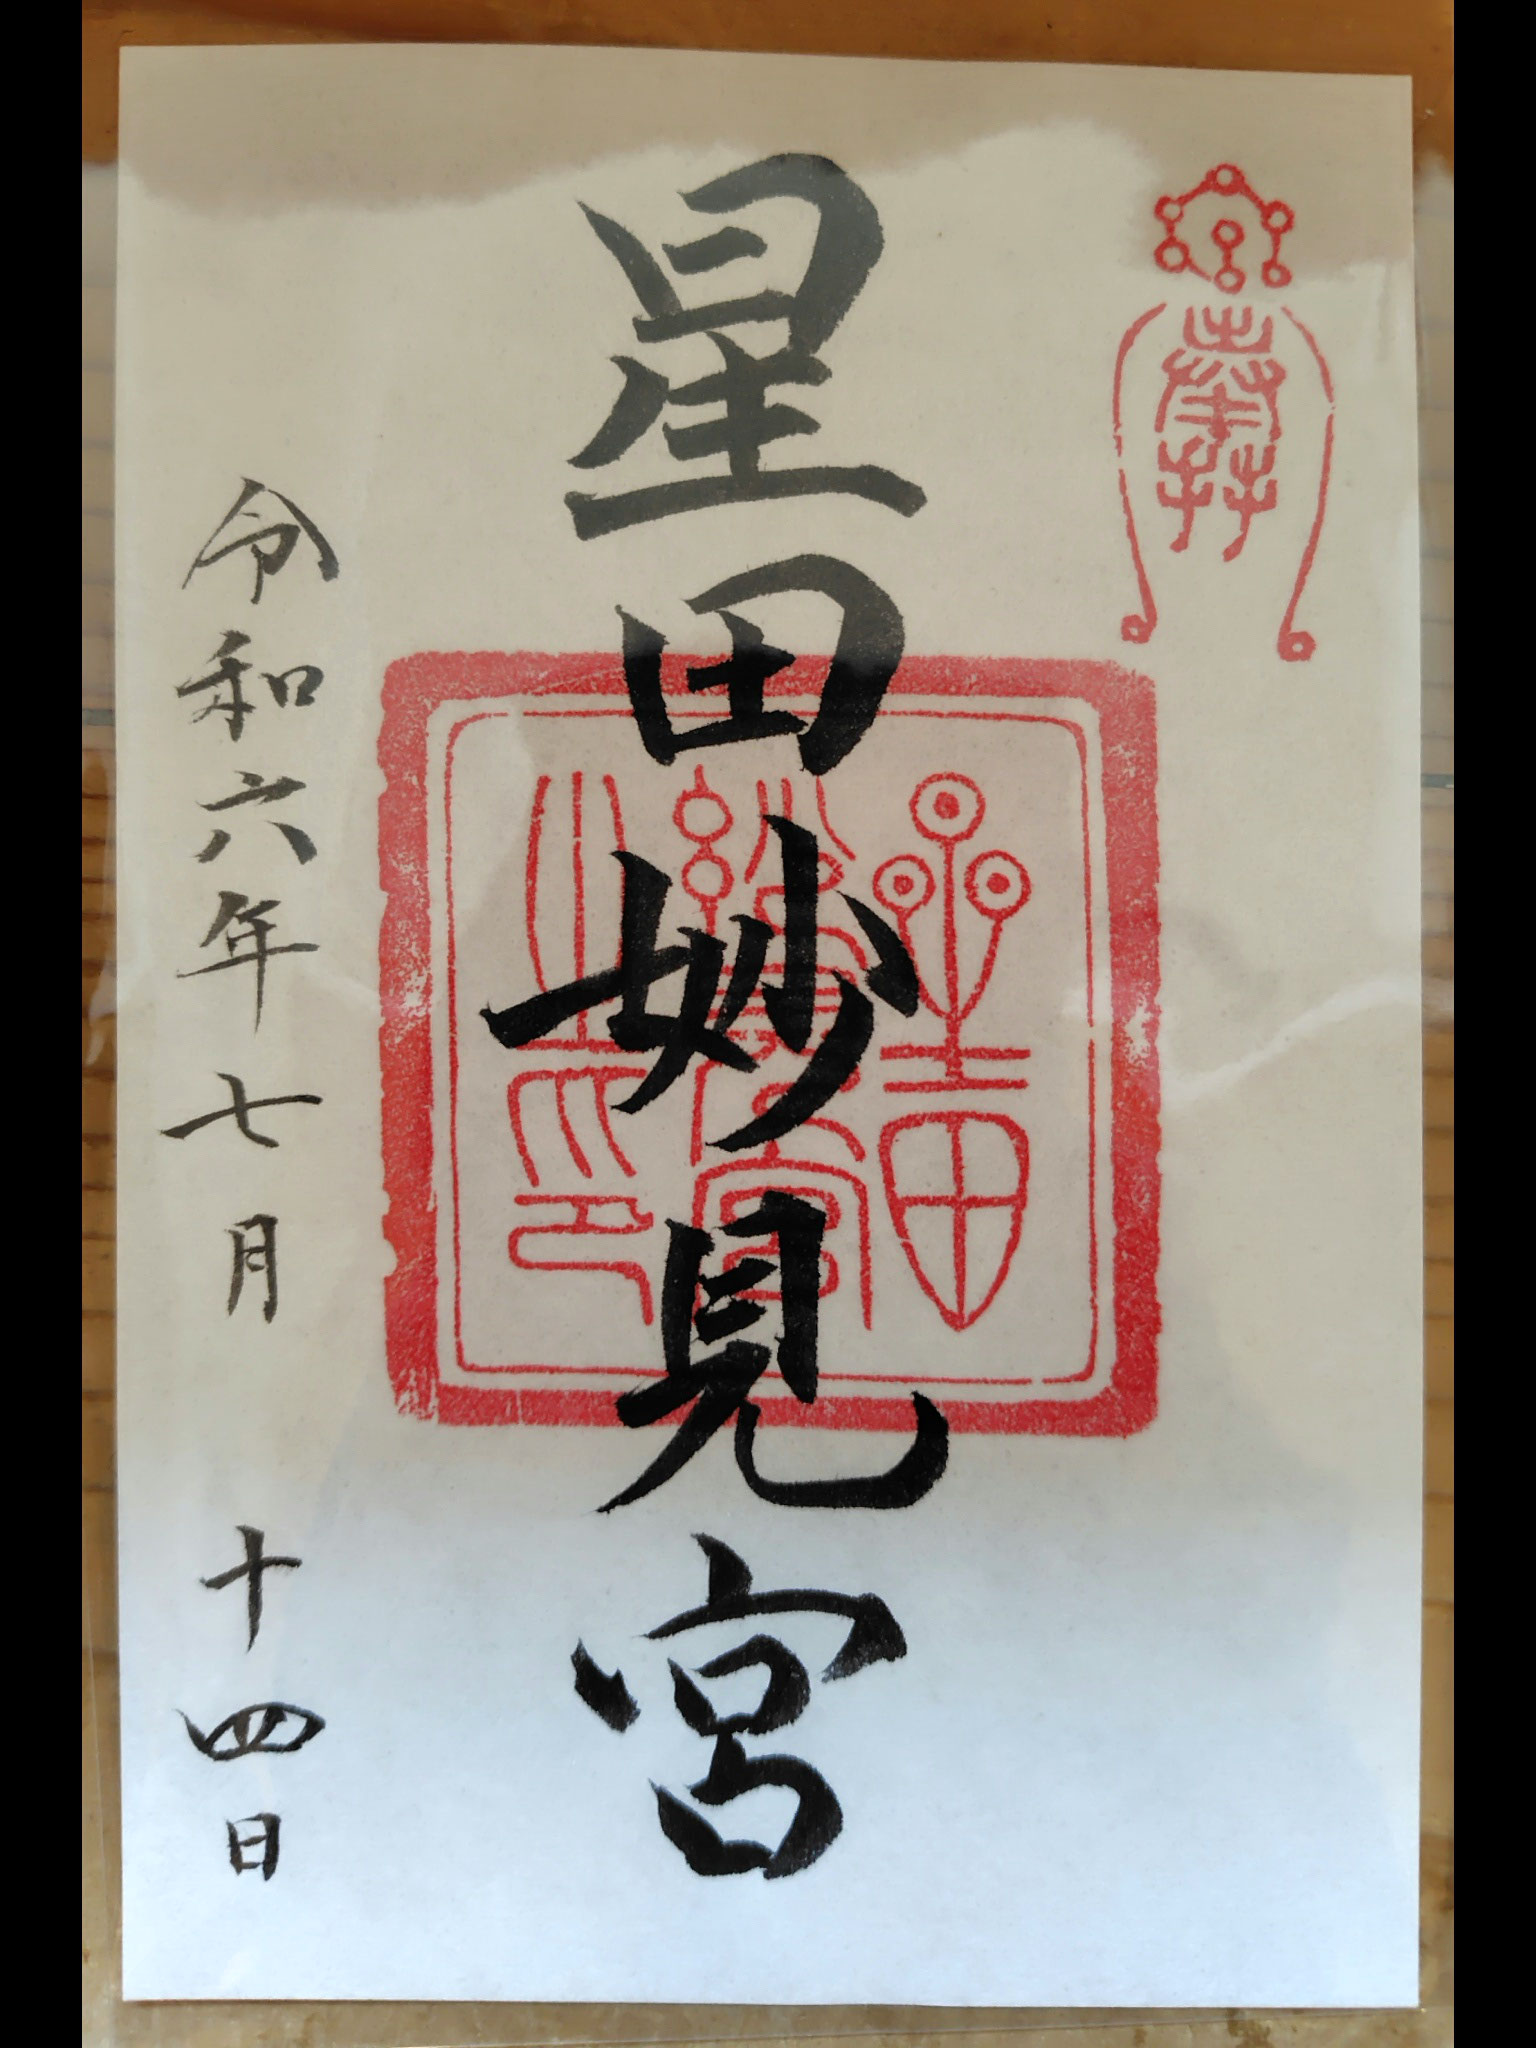 奉拝
星田妙見宮
星田妙見宮之印
令和六年七月十四日